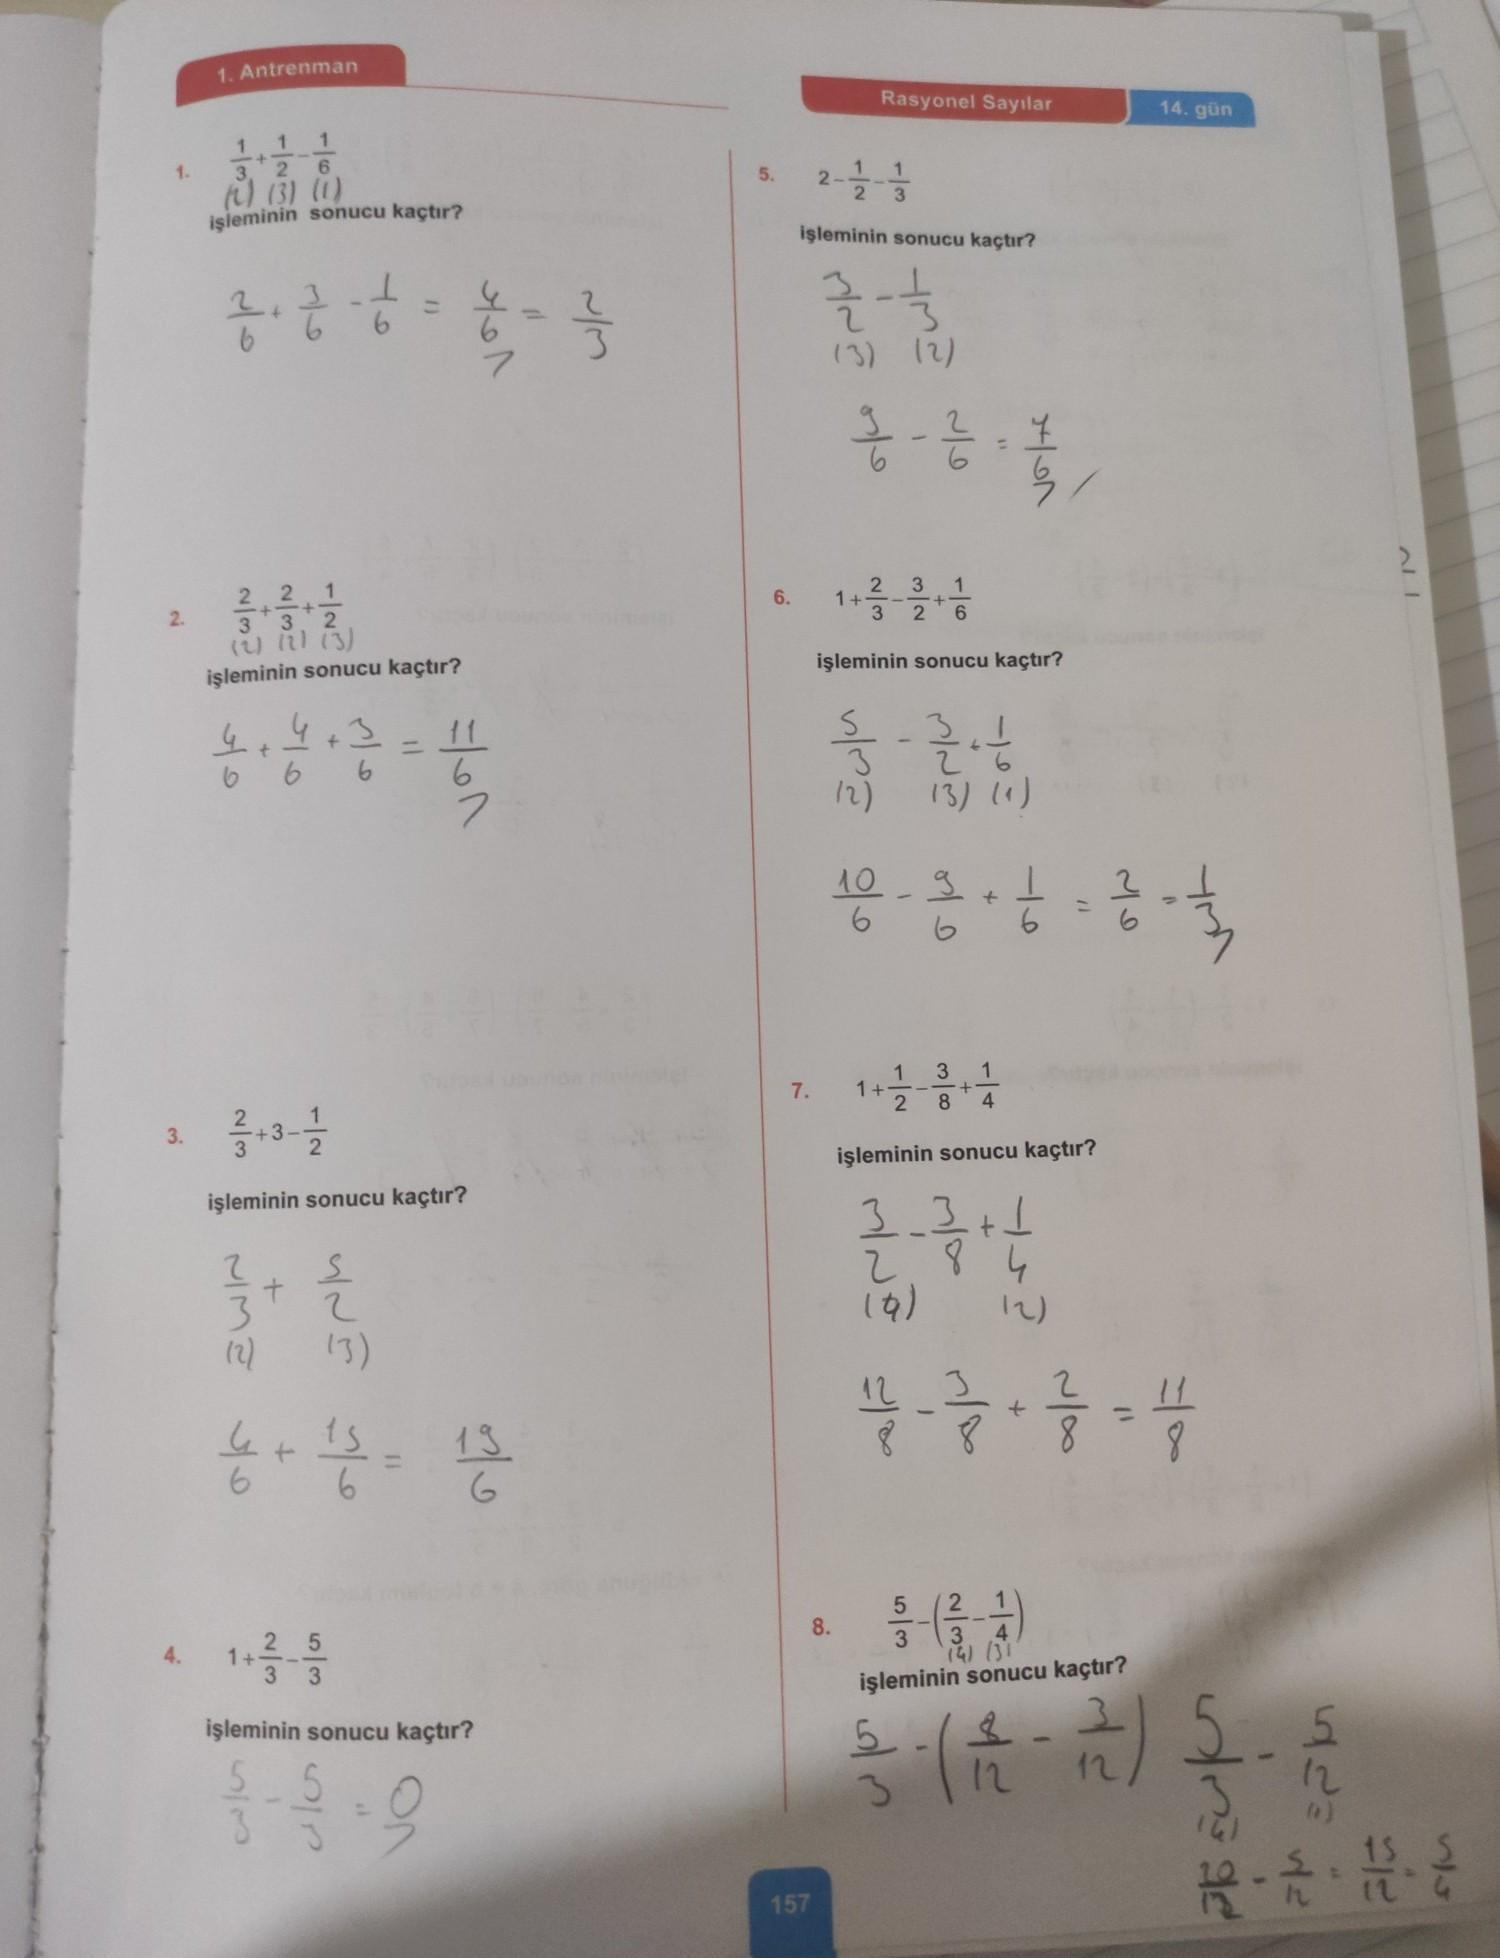 1. Antrenman
1. 1/3 + 1/2 - 1/6
(2) (3) (1)
işleminin sonucu kaçtır?
2/6 + 3/6 - 1/6 = 4/6 = 2/3
2. 2/3 + 2/3 + 1/2
(2) (2) (3)
işleminin sonucu kaçtır?
4/6 + 4/6 + 3/6 = 11/6
3. 2/3 + 3 - 1/2
işleminin sonucu kaçtır?
2/3 + 5/2
(2) (3)
4/6 + 15/6 = 19/6
4. 1 + 2/3 - 5/3
işleminin sonucu kaçtır?
5/3 - 5/3 = 0
Rasyonel Sayılar 14. gün
5. 2 - 1/2 - 1/3
işleminin sonucu kaçtır?
3/2 - 1/3
(3) (2)
9/6 - 2/6 = 7/6
6. 1 + 2/3 - 3/2 + 1/6
işleminin sonucu kaçtır?
5/3 - 3/2 + 1/6
(2) (3) (1)
10/6 - 9/6 + 1/6 = 2/6 = 1/3
7. 1 + 1/2 - 3/8 + 1/4
işleminin sonucu kaçtır?
3/2 - 3/8 + 1/4
(4) (2)
12/8 - 3/8 + 2/8 = 11/8
8. 5/3 - (2/3 - 1/4)
(4) (3)
işleminin sonucu kaçtır?
5/3 - (8/12 - 3/12) 5/3 - 5/12
(4) (1)
20/12 - 5/12 = 15/12 = 5/4
157